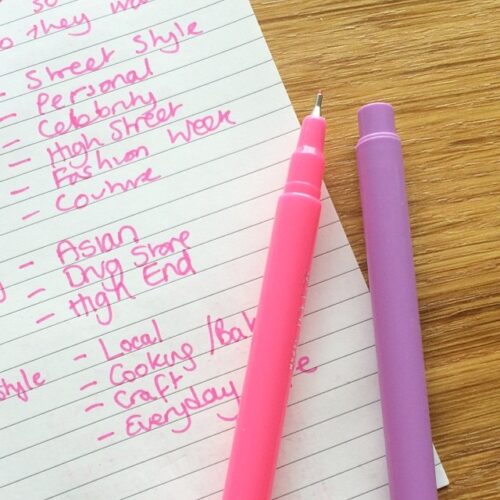 so
they
- Street Style
- Personal
- Celebrity
- High Street
- Fashion Week
- Couture
- Asian
- Drug Store
- High End
- Local
- Cooking /Bak
style - Craft
- Everyday